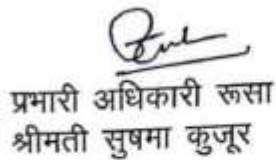 प्रभारी अधिकारी रूसा
श्रीमती सुषमा कुजूर